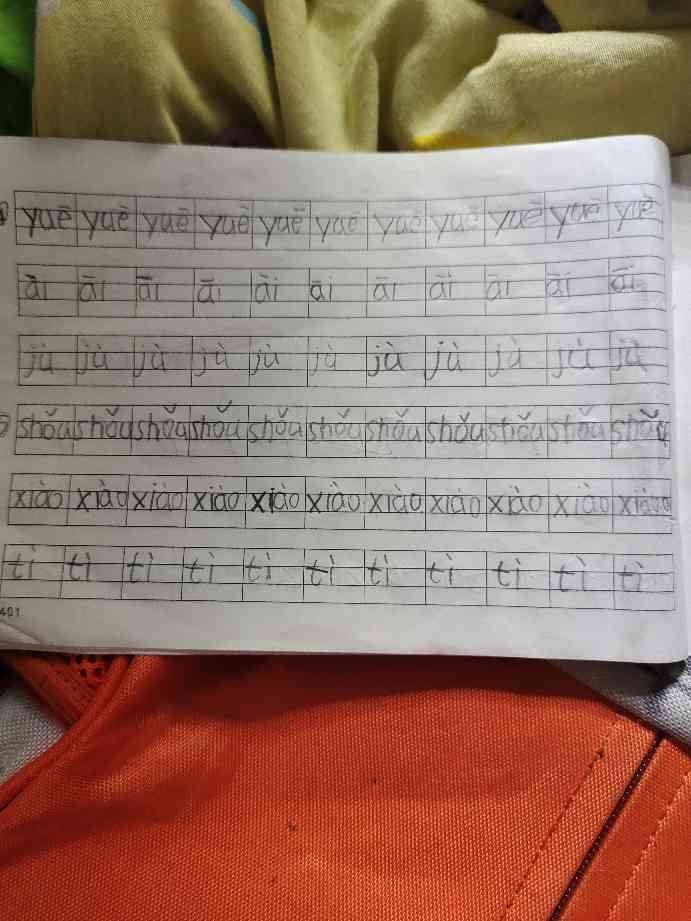 yuē yuē yuē yuè yuē yuē yuē yuē yuē yuè yuè
āi āi āi āi āi āi āi āi āi āi āi
jù jù jù jù jù jù jù jù jù jù jù
shǒu shǒu shǒu shǒu shǒu shǒu shǒu shǒu shǒu shǒu shǒu
xiào xiào xiào xiào xiào xiào xiào xiào xiào xiào xiào
tì tì tì tì tì tì tì tì tì tì tì
401